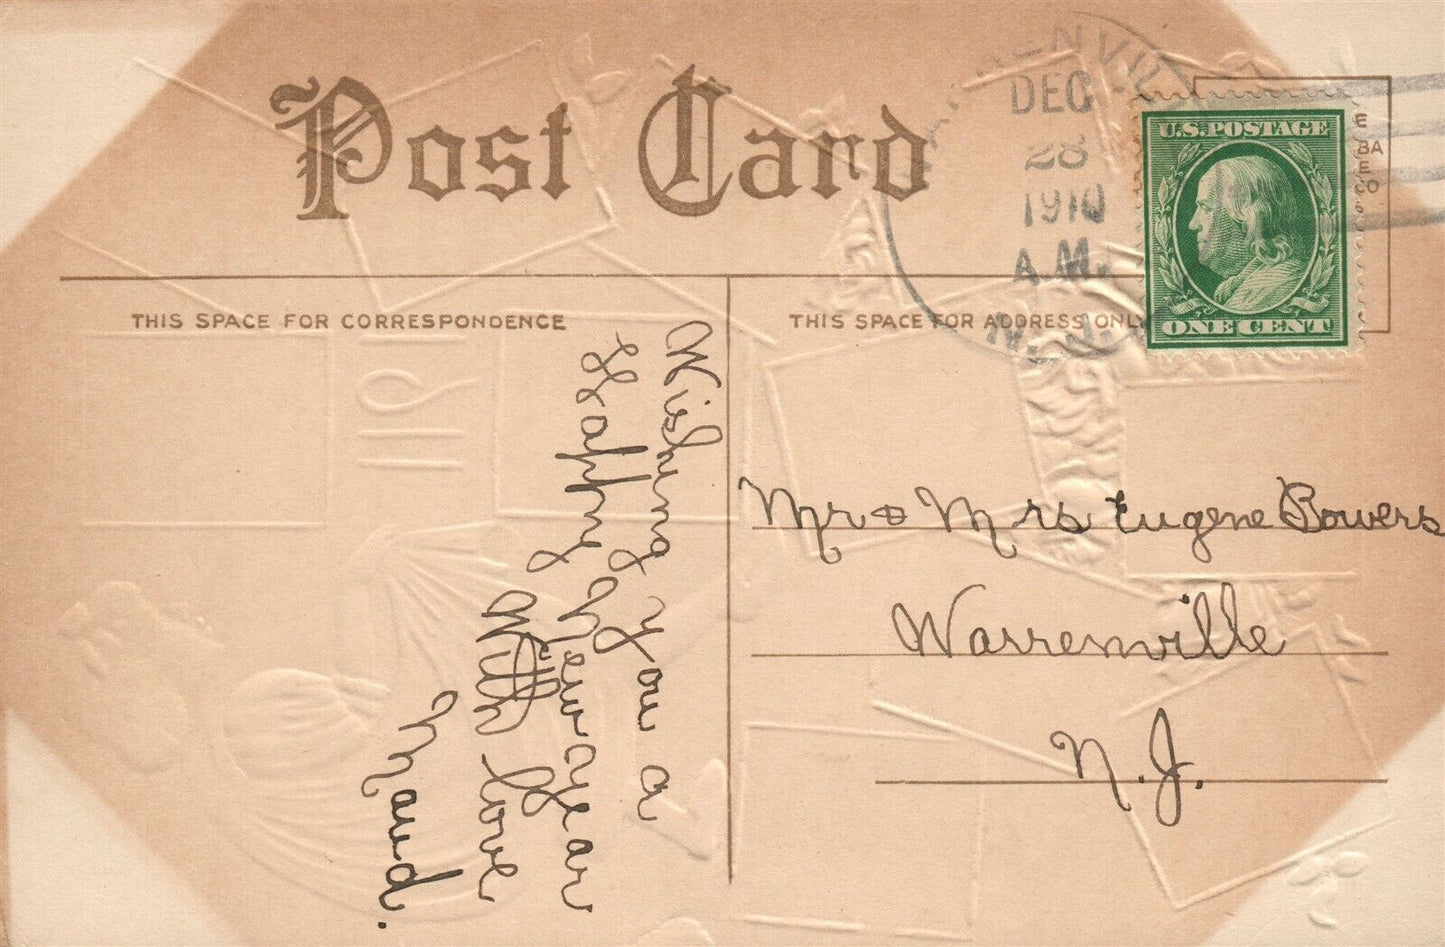 Post Card
WARRENVILLE
DEC
28
1910
A.M.
N.J.
U.S. POSTAGE
ONE CENT
E
BA
E
CO
THIS SPACE FOR CORRESPONDENCE
THIS SPACE FOR ADDRESS ONLY
Wishing you a
Happy New Year
With love
Maud.
Mr & Mrs Eugene Bowers
Warrenville
N. J.